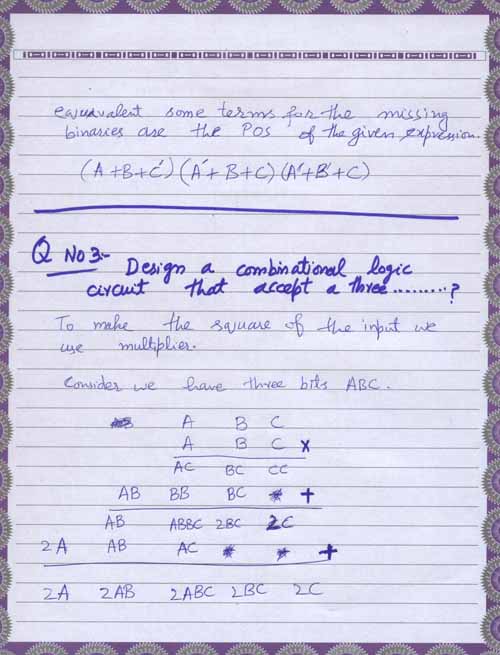 equavalent some terms for the missing
binaries are the POS of the given expression.
(A+B+C')(A'+B+C)(A'+B'+C)
Q No 3:- Design a combinational logic
circuit that accept a three.........?
To make the square of the input we
use multiplier.
Consider we have three bits ABC.
A B C
A B C ×
AC BC CC
AB BB BC * +
AB ABBC 2BC 2C
2A AB AC * * +
2A 2AB 2ABC 2BC 2C